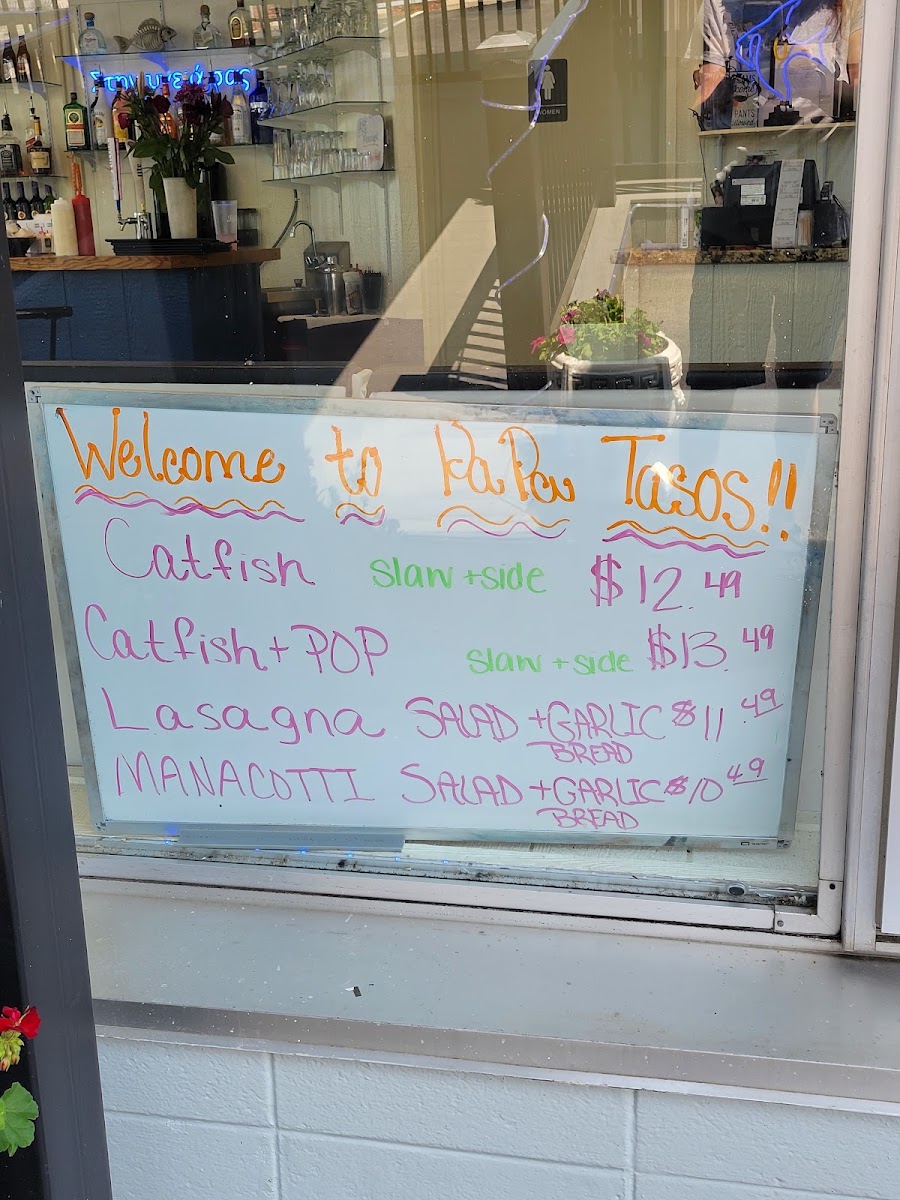 Στην υγειά μας
WOMEN
Welcome to PaPou Tasos!!
Catfish slaw + side $12.49
Catfish + POP slaw + side $13.49
Lasagna SALAD + GARLIC BREAD $11.49
MANACOTTI SALAD + GARLIC BREAD $10.49